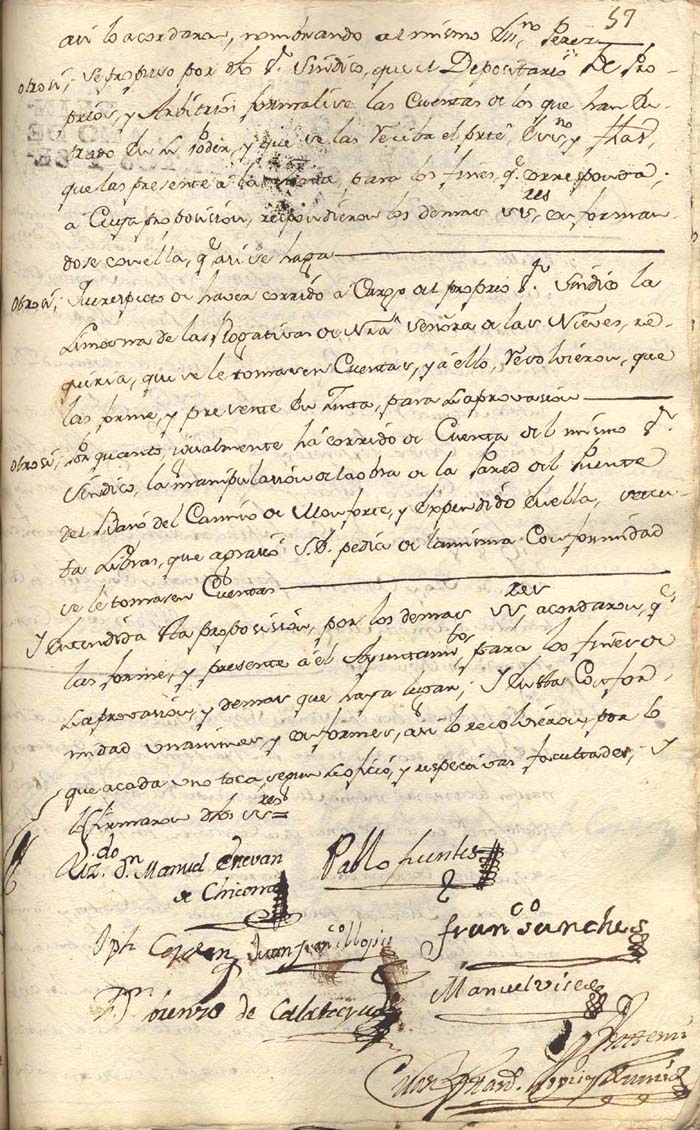 57
asi lo acordaron, nombrando al mismo Perez
otrosi; Se propuso por dho Sr. Sindico, que el Depositario de Pro-
prios, y Arbitrios formalise las Cuentas de los que han en-
trado en su Poder, y que se las reciba el prte Essno, y
que las presente a la para los fines, qe. corresponda;
a Cuya proposicion, respondieron los demas SSres, conforman-
dose con ella, qe. asi se haga
Otrosi; Qu respecto de haver corrido a Cargo del proprio Sr. Sindico la
Limosna de las Rogativas de Nra. Señora de las Nieves, re-
queria, que se le tomasen Cuentas, y a ello, resolvieron, que
las forme, y presente en Junta, para su aprovasion
Otrosi; Por quanto, igualmente ha corrido de Cuenta del mismo Sr.
Sindico, la manipulasion de la obra de la Pared del Puente
del del Camino de Monforte, y expendido en ella,
ta Libras, que aprasió S.S. pedia de la misma Conformidad
se le tomasen Cuentas
Y entendida esta proposision, por los demas SSres acordaron, qe.
las forme, y presente a el Ayuntamto, para los fines de
su aprovasion, y demas que haya lugar; Y en esta Confor-
midad unanimes, y conformes, asi lo resolvieron por lo
que a cada uno toca, segun su oficio, y respectivas facultades; Y
lo firmaron dhos SSres
Lizdo. Dn. Manuel Estevan
de Chicoma
Pablo fuentes
Juan franco. Llopis
franco Sanches
Dn. Lorenzo de Calatayud
Manuel
Ante mi